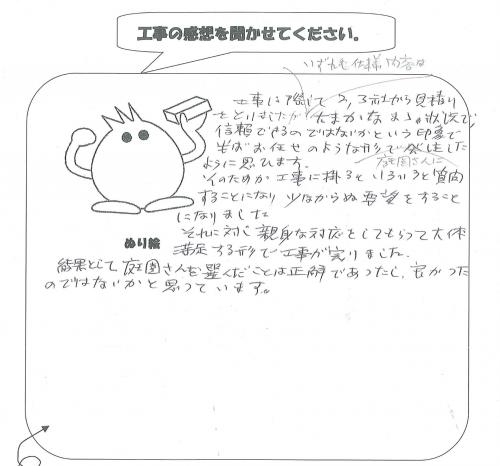 工事の感想を聞かせてください。
いずれも仕様内容は
工事に際して2,3社から見積り
をとりましたが大まかなまゝの状況で
信頼できるのではないかという印象で
半ばお任せのような形で発注した
ように思ひます。
庭園さんに
そのためか工事に掛るといろいろと質問
することになり少なからぬ要望をすること
になりました
それに対し親身な対応をしてもらって大体
満足する形で工事が完りました。
ぬり絵
結果として庭園さんを選んだことは正解であったし、良かった
のではないかと思っています。